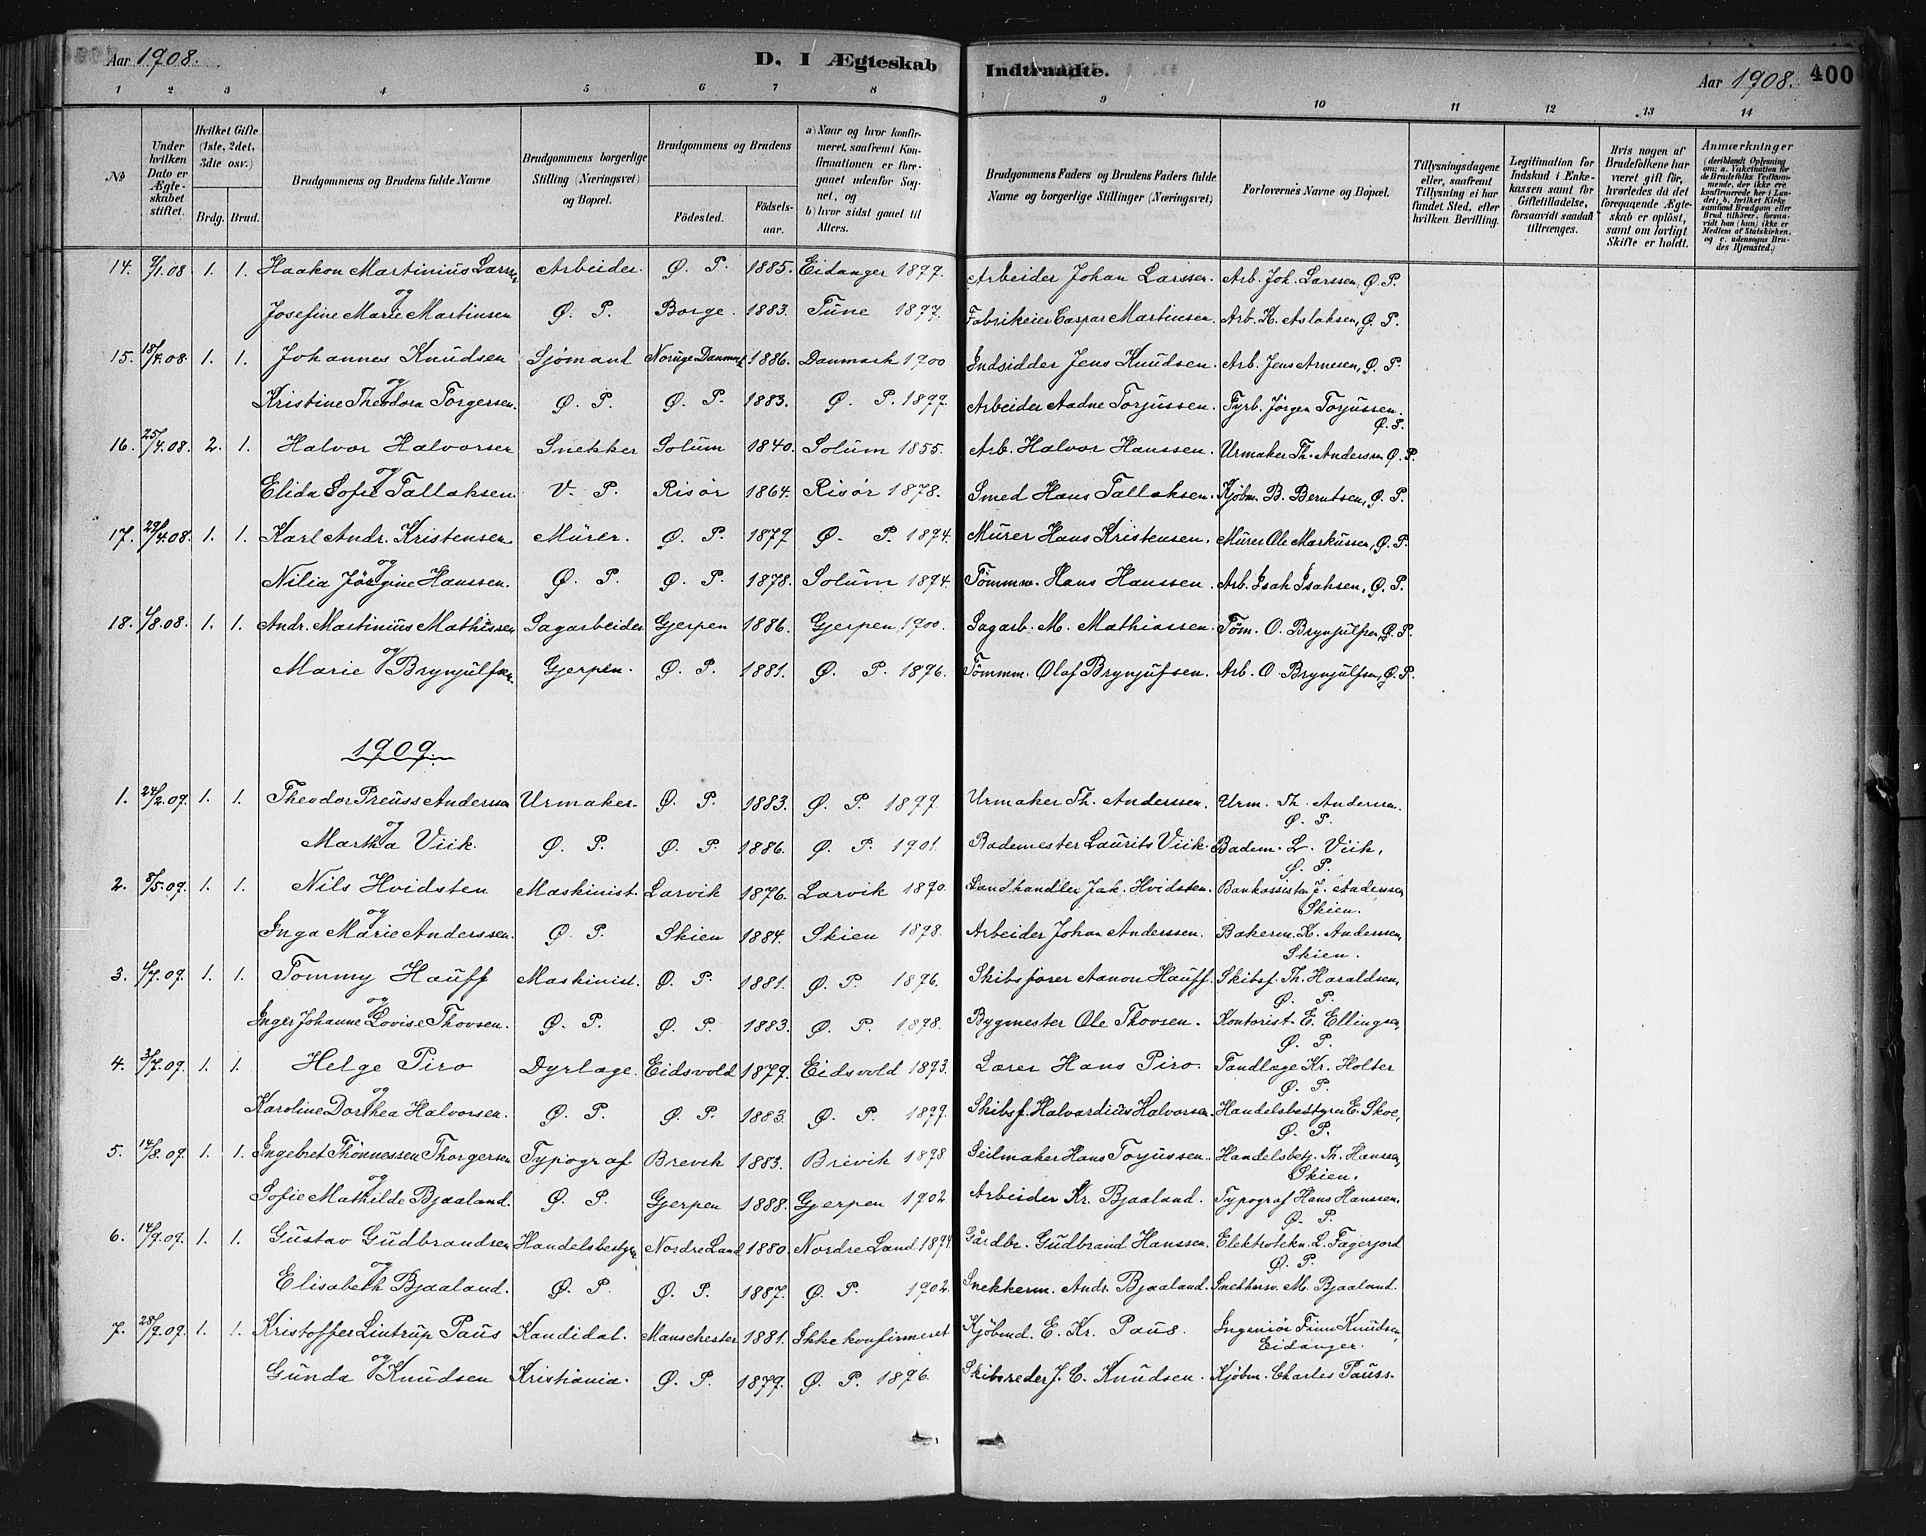 Aar 1908. D. I Ægteskab Indtraadte. Aar 1908. 400
1 2 3 4 5 6 7 8 9 10 11 12 13 14
No
Under hvilken Dato er Ægteskabet stiftet.
Hvilket Gifte (1ste, 2det, 3die osv.)
Brdg. Brud.
Brudgommens og Brudens fulde Navne
Brudgommens borgerlige Stilling (Næringsvei) og Bopæl.
Brudgommens og Brudens
Födested. Födselsaar.
a) Naar og hvor konfirmeret, saafremt Konfirmationen er foregaaet udenfor Sognet, og
b) hvor sidst gaaet til Alters.
Brudgommens Faders og Brudens Faders fulde Navne og borgerlige Stillinger (Næringsvei)
Forlovernes Navne og Bopæl.
Tillysningsdagene eller, saafremt Tillysning ei har fundet Sted, efter hvilken Bevilling.
Legitimation for Indskud i Enkekassen samt for Giftetilladelse, forsaavidt saadan tiltrænges.
Hvis nogen af Brudefolkene har været gift før, hvorledes da det foregaaende Ægteskab er opløst, samt om lovligt Skifte er holdt.
Anmærkninger
(deriblandt Oplysning om: a. Vakcination for de Brudefolks Vedkommende, der ikke ere konfirmerede her i Landet; b. hvilket Kirkesamfund Brudgom eller Brud tilhører, forsaavidt han (hun) ikke er Medlem af Statskirken, og c. udensogns Brudes Hjemsted.)
14. 1. 1. Haakon Martinius Larsen Arbeider Ø. P. 1885. Eidanger 1899. Arbeider Johan Larssen. Arb. Joh. Larssen, Ø. P.
og
Josefine Marie Martinsen Ø. P. Borge. 1883. Tune 1897. Fabrikeier Caspar Martensen. Arb. K. Aslaksen, Ø. P.
15. 18/4.08. 1. 1. Johannes Knudsen Sjømand 1886. Danmark 1900 Indsidder Jens Knudsen. Arb. Jens Arnesen, Ø. P.
og
Kristine Theodora Torgersen. Ø. P. Ø. P. 1883. Ø. P. 1899. Arbeider Aadne Torjussen. Fyrb. Jörgen Torjussen. Ø. P.
16. 25/4.08. 2. 1. Halvor Halvorsen Snekker Solum 1840. Solum 1855. Arb. Halvor Hanssen. Urmaker Th. Anderssen Ø. P.
og
Elida Sofie Tallaksen V. P. Risør 1864. Risør 1878. Smed Hans Tallaksen. Kjøbm. B. Berntsen, Ø. P.
17. 29/4.08. 1. 1. Karl Andr. Kristensen Mürer. Ø. P. 1879 Ø. P. 1894. Mürer Hans Kristensen. Mürer Ole Markussen, Ø. P.
og
Nilia Jörgine Hanssen. Ø. P. Ø. P. 1878. Solum 1894. Tømmm. Hans Hanssen. Arb. Isak Isaksen, Ø. P.
18. 1/8.08. 1. 1. Andr. Martinius Mathissen Sagarbeider Gjerpen 1886. Gjerpen 1900. Sagarb. M. Mathiassen. Töm. O. Brynjülfsen, Ø. P.
og
Marie Brynjülfsen. Gjerpen. Ø. P. 1881. Ø. P. 1896. Tømmm. Olaf Brynjufsen. Arb. O. Brynjülfsen, Ø. P.
1909.
1. 24/2.09. 1. 1. Theodor Preüss Anderssen Urmaker. Ø. P. 1883. Ø. P. 1899 Urmaker Th. Anderssen. Urm. Th. Andersen. Ø. P.
og
Martha Viik. Ø. P. Ø. P. 1886. Ø. P. 1901. Bademester Laurits Viik. Badem. L. Viik, Ø. P.
2. 8/5.09. 1. 1. Nils Hvidsten Maskinist. Larvik 1876. Larvik 1890. Landhandler Jak. Hvidsten. Bankassistent J. Anderssen, Skien.
og
Inga Marie Anderssen. Ø. P. Skien 1884. Skien 1898. Arbeider Johan Anderssen. Bakerm. K. Anderssen, Skien.
3. 1/7.09. 1. 1. Tommy Hauff Maskinist. Ø. P. 1881. Ø. P. 1896. Skibsfører Aanon Hauff. Skibsf. Th. Haraldsen, Ø. P.
og
Inger Johanne Lovise Thovsen. Ø. P. Ø. P. 1883. Ø. P. 1898. Bygmester Ole Thovsen. Kontorist E. Ellingsen, Ø. P.
4. 3/7.09. 1. 1. Helge Piro Dyrlæge. Eidsvold 1879. Eidsvold 1893. Lærer Hans Piro. Tandlæge Kr. Holter Ø. P.
og
Karoline Dorthea Halvorsen. Ø. P. Ø. P. 1883. Ø. P. 1899. Skibsf. Halvardius Halvorsen. Handelsbestyrer E. Skoe, Ø. P.
5. 14/8.09. 1. 1. Ingebret Thönnessen Thorgersen Typograf Brevik 1883. Brevik 1898 Seilmaker Hans Torjussen. Handelsbetj. Th. Hanssen, Skien.
og
Sofie Mathilde Bjaaland. Ø. P. Gjerpen 1888. Gjerpen 1902. Arbeider Kr. Bjaaland. Typograf Hans Hanssen, Ø. P.
6. 14/9.09. 1. 1. Güstav Güdbrandsen Handelsbestyrer Nordre Land 1880. Nordre Land 1894. Gårdbr. Güdbrand Hanssen. Elektrotekn. L. Fagerjord Ø. P.
og
Elisabeth Bjaaland. Ø. P. Ø. P. 1887. Ø. P. 1902. Snekkerm. Andr. Bjaaland. Snekkerm. M. Bjaaland.
7. 28/9.09. 1. 1. Kristoffer Lintrup Paus Kandidat. Manschester 1881. Ikke konfirmeret Kjöbmd. E. Kr. Paus. Ingeniör Finn Knudsen, Eidanger.
og
Gunda Knüdsen Kristiania. Ø. P. 1879. Ø. P. 1896. Skibsreder J. C. Knudsen. Kjöbm. Charles Pauss.